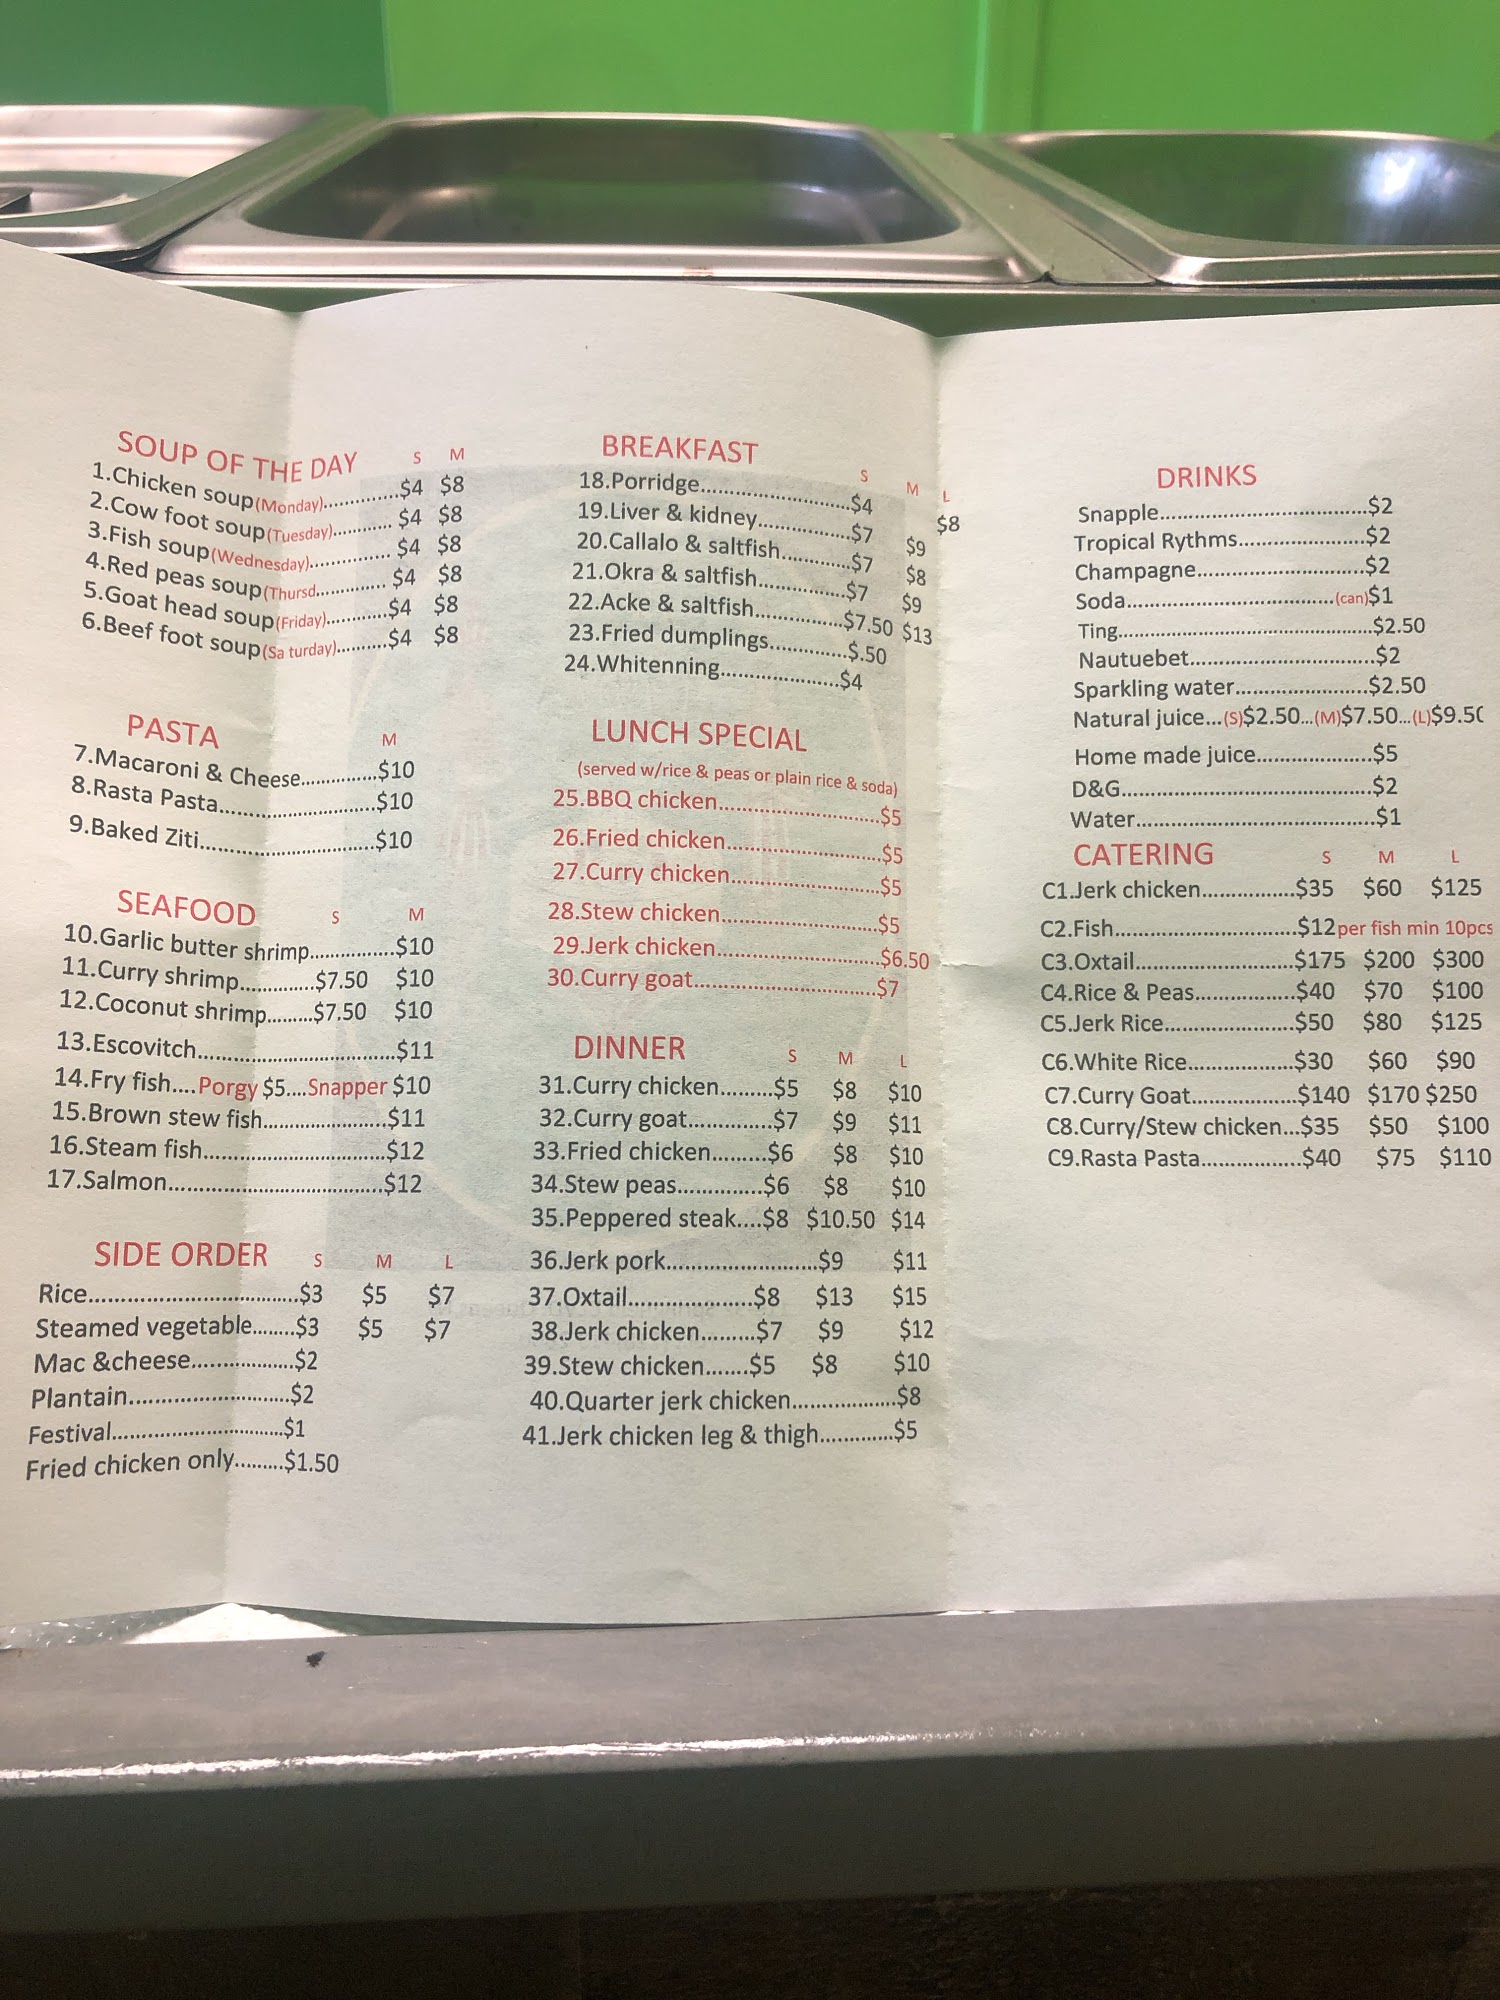 SOUP OF THE DAY S M
1.Chicken soup(Monday)..............$4 $8
2.Cow foot soup(Tuesday)........... $4 $8
3.Fish soup(Wednesday)............... $4 $8
4.Red peas soup(Thursd............... $4 $8
5.Goat head soup(Friday)............$4 $8
6.Beef foot soup(Sa turday)..........$4 $8
PASTA M
7.Macaroni & Cheese..............$10
8.Rasta Pasta.............................$10
9.Baked Ziti................................$10
SEAFOOD S M
10.Garlic butter shrimp...............$10
11.Curry shrimp.............$7.50 $10
12.Coconut shrimp.........$7.50 $10
13.Escovitch...................................$11
14.Fry fish....Porgy $5....Snapper $10
15.Brown stew fish......................$11
16.Steam fish................................$12
17.Salmon......................................$12
SIDE ORDER S M L
Rice.....................................$3 $5 $7
Steamed vegetable........$3 $5 $7
Mac &cheese..................$2
Plantain............................$2
Festival..............................$1
Fried chicken only.........$1.50
BREAKFAST S M L
18.Porridge..........................$4 $8
19.Liver & kidney................$7 $9
20.Callalo & saltfish............$7 $8
21.Okra & saltfish...............$7 $9
22.Acke & saltfish...............$7.50 $13
23.Fried dumplings..............$.50
24.Whitenning.....................$4
LUNCH SPECIAL
(served w/rice & peas or plain rice & soda)
25.BBQ chicken............................$5
26.Fried chicken...........................$5
27.Curry chicken..........................$5
28.Stew chicken...........................$5
29.Jerk chicken............................$6.50
30.Curry goat................................$7
DINNER S M L
31.Curry chicken.........$5 $8 $10
32.Curry goat..............$7 $9 $11
33.Fried chicken.........$6 $8 $10
34.Stew peas..............$6 $8 $10
35.Peppered steak....$8 $10.50 $14
36.Jerk pork.........................$9 $11
37.Oxtail.....................$8 $13 $15
38.Jerk chicken.........$7 $9 $12
39.Stew chicken.......$5 $8 $10
40.Quarter jerk chicken.................$8
41.Jerk chicken leg & thigh............$5
DRINKS
Snapple...................................$2
Tropical Rythms.....................$2
Champagne............................$2
Soda...................................(can)$1
Ting...........................................$2.50
Nautuebet...............................$2
Sparkling water......................$2.50
Natural juice...(S)$2.50...(M)$7.50...(L)$9.50
Home made juice....................$5
D&G...........................................$2
Water........................................$1
CATERING S M L
C1.Jerk chicken...............$35 $60 $125
C2.Fish..............................$12per fish min 10pcs
C3.Oxtail..........................$175 $200 $300
C4.Rice & Peas................$40 $70 $100
C5.Jerk Rice.....................$50 $80 $125
C6.White Rice.................$30 $60 $90
C7.Curry Goat.................$140 $170 $250
C8.Curry/Stew chicken...$35 $50 $100
C9.Rasta Pasta.................$40 $75 $110